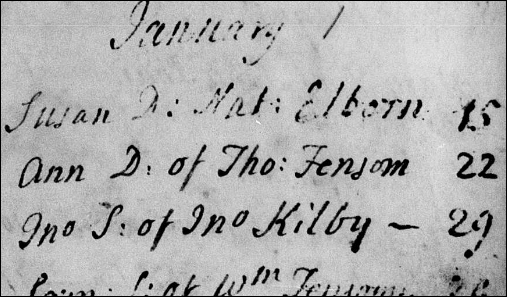 January
Susan D: Nat: Elborn 15
Ann D: of Tho: Fensom 22
Jno S: of Jno Kilby — 29
S: of Wm Fensom